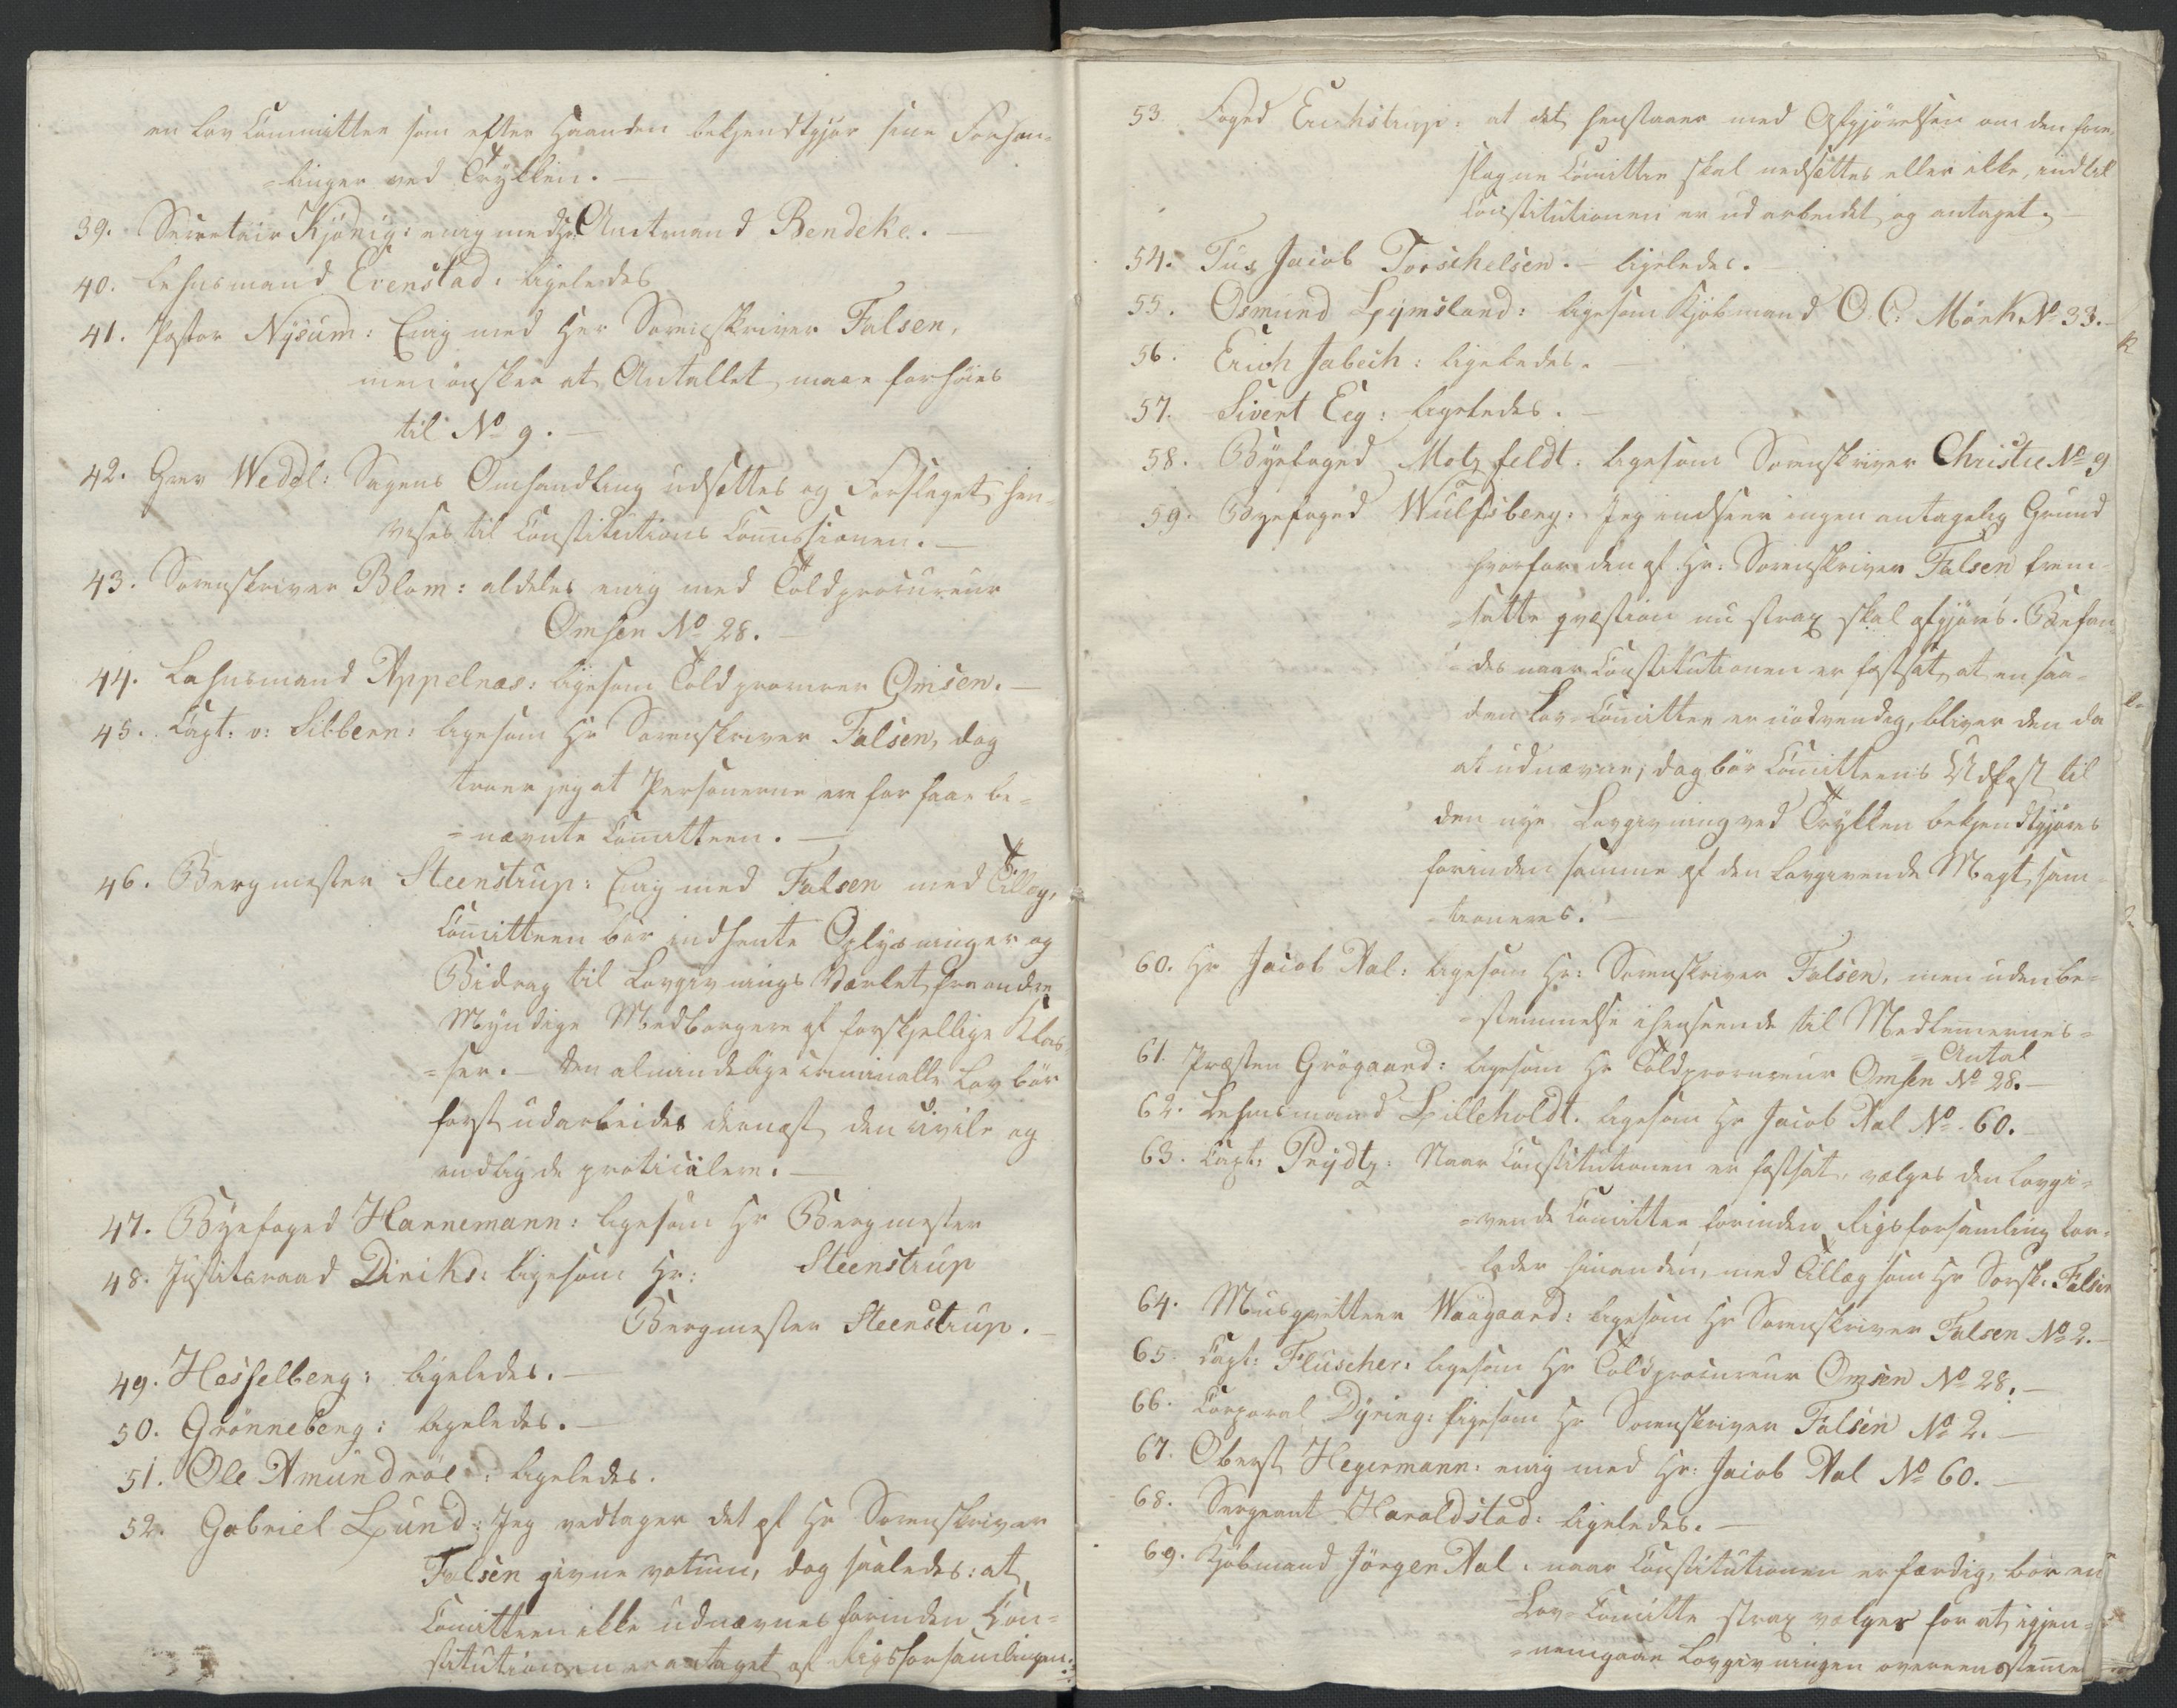 en Lov Committee som efter Haanden bekjendtgjør sine Forhan-
=linger ved Trykken. —
39. Secretair Kjönig: enig med Hr Amtmand Bendeke. —
40. Lehnsmand Evenstad: ligeledes
41. Pastor Nysum: Enig med Her Sorenskriver Falsen,
men önsker at Antallet maae forhöies
til No 9. —
42. Grev Wedel: Sagens Omhandling udsættes og Forslaget hen-
vises til Constitutions Commissionen. —
43. Sorenskriver Blom: aldeles enig med Toldprocureur
Omsen No 28. —
44. Lehnsmand Appelnæs: ligesom Toldprocureur Omsen. —
45. Capt: v: Sibbern: ligesom Hr Sorenskriver Falsen, dog
troer jeg at Personerne ere for faae be-
=nævnte Comitteen. —
46. Bergmester Steenstrup: Enig med Falsen med Tillæg,
Comitteen bör indhente Oplysninger og
Bidrag til Lovgivnings Værket fra andre
Myndige Medborgere af forskjellige Klas-
=ser. — Den almindelige criminelle Lov bör
først udarbeides dernæst den civile og
endlig de particulere. —
47. Byefoged Hannemann: ligesom Hr Bergmester
Steenstrup
48. Justitsraad Diriks: ligesom Hr:
Bergmester Steenstrup. —
49. Hesselberg: ligeledes. —
50. Grönneberg: ligeledes. —
51. Ole Amundröe: ligeledes.
52. Gabriel Lund: Jeg vedtager det af Hr Sorenskriver
Falsen givne votum, dog saaledes: at
Comitteen ikke udnævnes forinden Con-
stitutionen er antaget af Rigsforsamlingen.
53. Foged Erichstrup: at det henstaaer med Afgjörelsen om den fore-
slagne Comittee skal nedsættes eller ikke, indtil
Constitutionen er udarbeidet og antaget. —
54. Just Jacob Torschelsen. — ligeledes. —
55. Osmund Lymsland: ligesom Kjöbmand O. C: Mörk No 33. —
56. Erich Jabech: ligeledes. —
57. Sivert Eeg: ligeledes. —
58. Byefoged Motzfeldt: ligesom Sorenskriver Christie No 9
59. Byefoged Wulfsberg: Jeg indseer ingen antagelig Grund
hvorfor den af Hr: Sorenskriver Falsen frem-
=satte qvæstion nu strax skal afgjöres. Befin-
des naar Constitutionen er fastsat, at en saa-
den Lov-Comittee er nödvendig, bliver den da
at udnævne; dog bör Comitteens Udkast til
den nye Lovgivning ved Trykken bekjendtgjöres
forinden samme af den lovgivende Magt sanc-
=tioneres. —
60. Hr Jacob Aal: ligesom Hr: Sorenskriver Falsen, men uden be-
=stemmelse i henseende til Medlemmernes-
=Antal
61. Præsten Grögaard: ligesom Hr Toldprocureur Omsen No 28. —
62. Lehnsmand Lilleholdt. ligesom Hr Jacob Aal No 60. —
63. Capt: Prydtz: Naar Constitutionen er fastsat, vælges den lovgi-
=vende Comittee forinden Rigsforsamling for-
lader hinanden, med Tillæg som Hr Sorsk: Falsen
64. Musqvetteer Waagaard: ligesom Hr Sorenskriver Falsen No 2. —
65. Capt: Fluscher: ligesom Hr Toldprocureur Omsen No 28. —
66. Corporal Dyring: ligesom Hr Sorenskriver Falsen No 2. —
67. Oberst Hegermann: enig med Hr: Jacob Aal No 60. —
68. Sergeant Haraldstad: ligeledes. —
69. Kjöbmand Jörgen Aal: naar Constitutionen er færdig, bör en
Lov-Comitte strax vælges for at igjen-
=nemgaae Lovgivningen overeensstemme